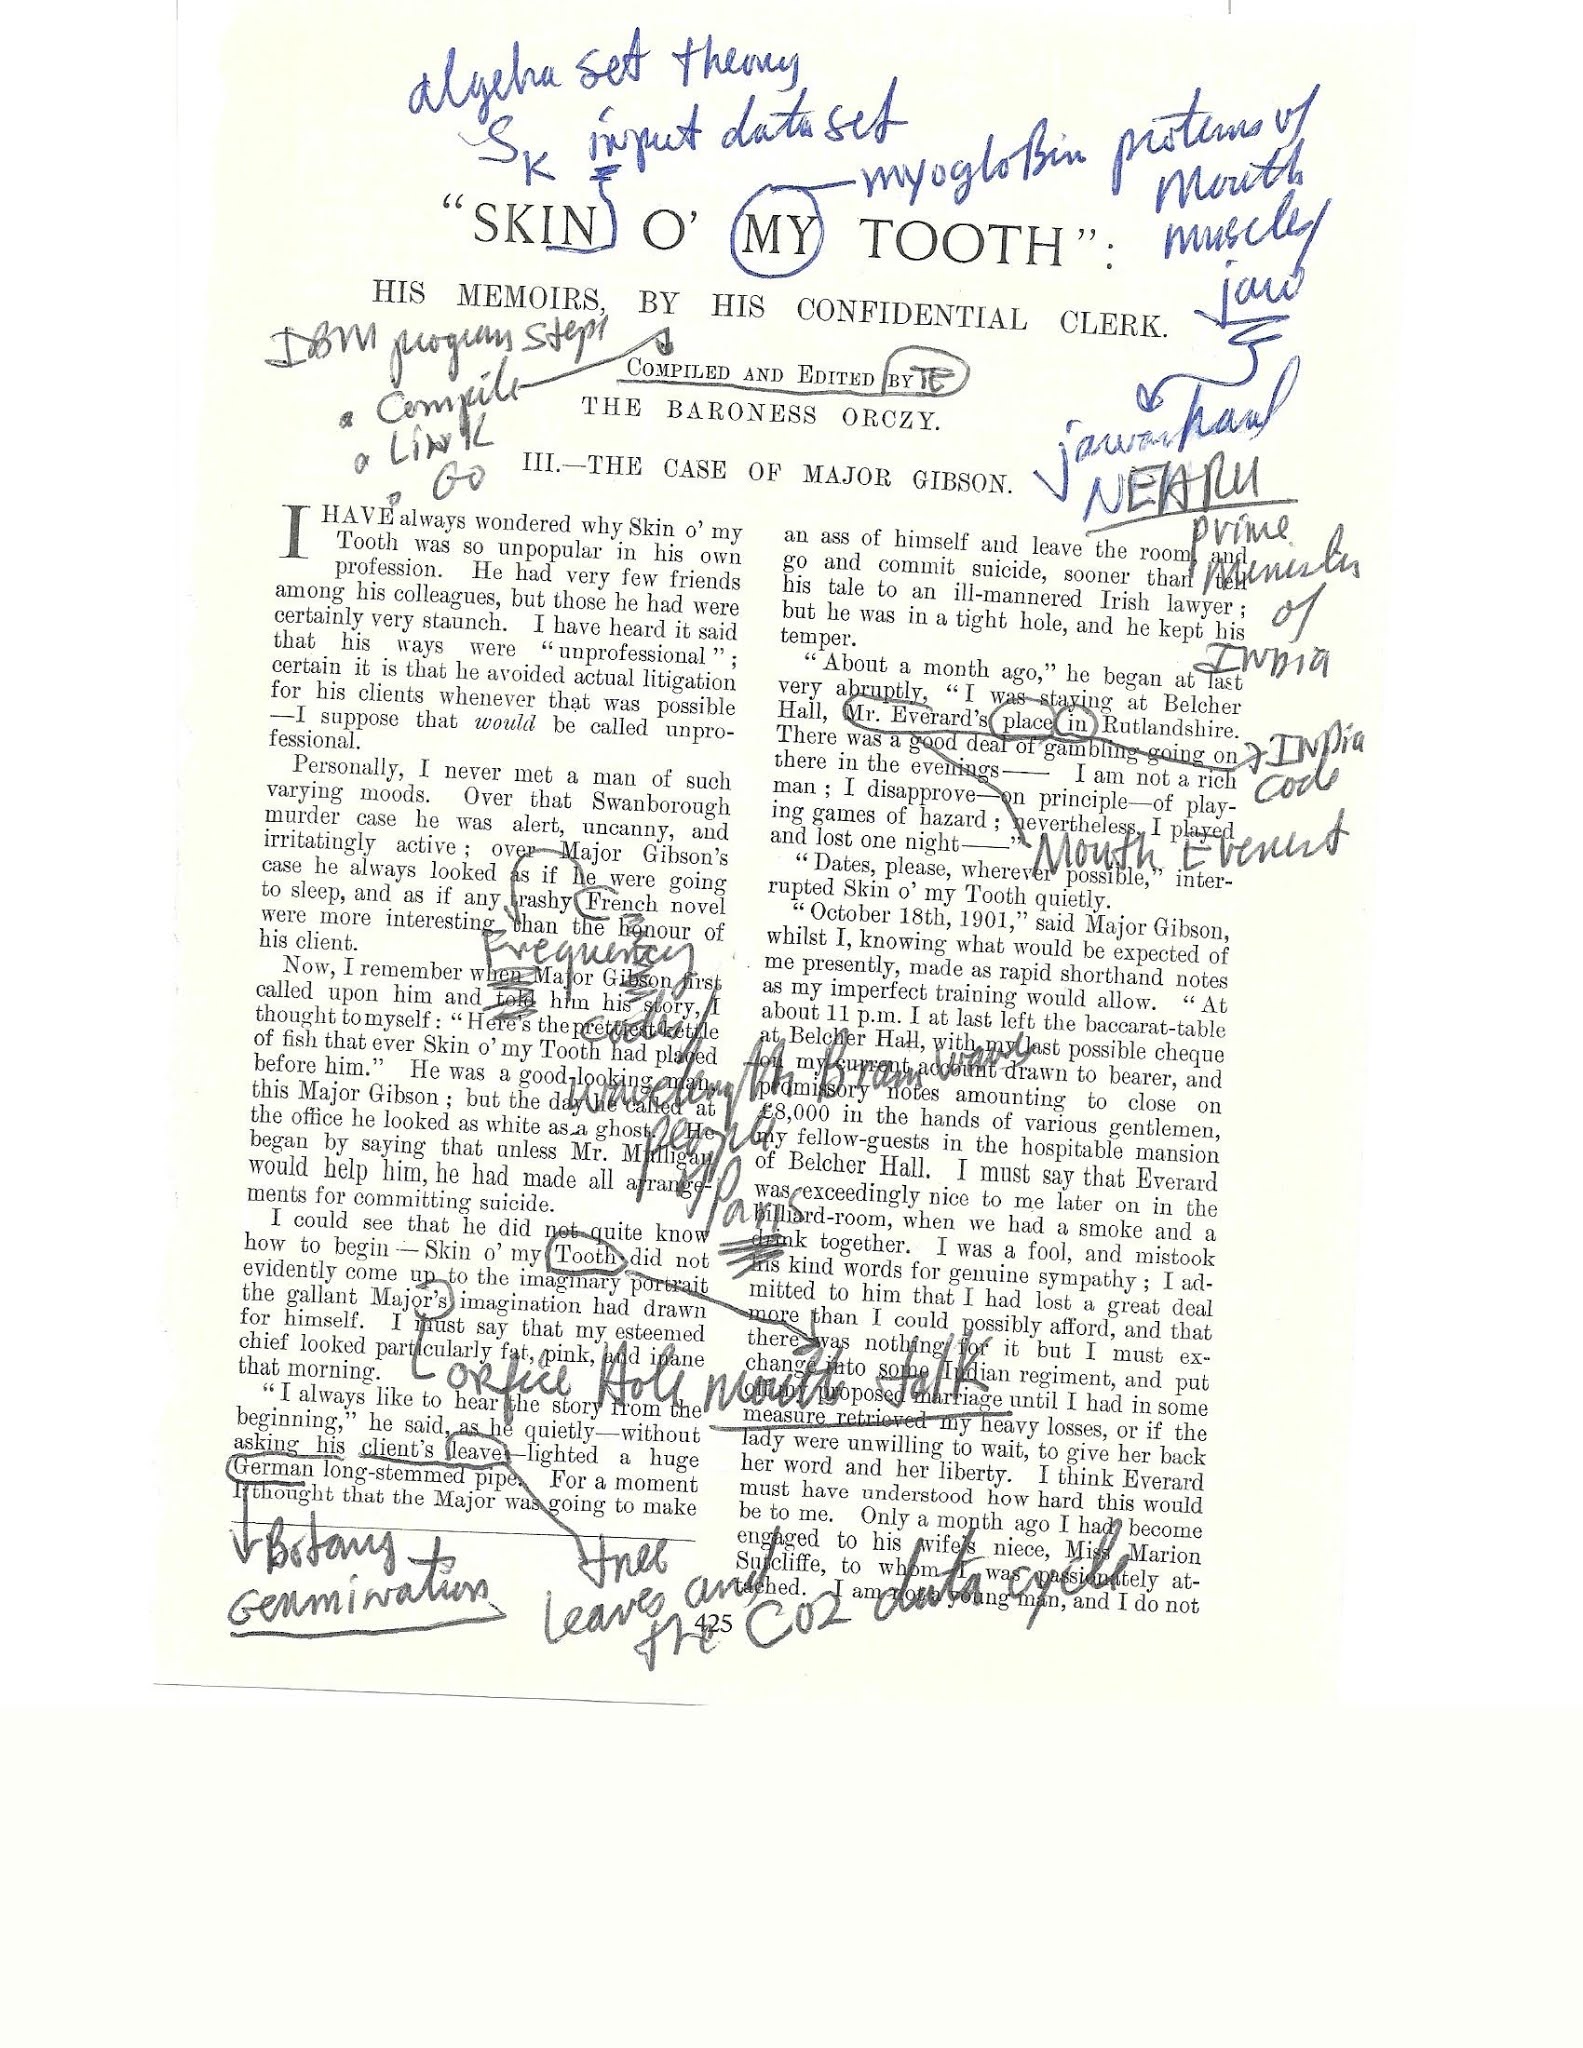 algebra set theory
SK input data set
myogloBin proteins of
Mouth
muscles
jaw
"SKIN O' MY TOOTH":
HIS MEMOIRS, BY HIS CONFIDENTIAL CLERK.
IBM program steps
Compile
LINK
GO
COMPILED AND EDITED BY TE
THE BARONESS ORCZY.
jawarhaul
NEHRU
prime
Minister
of
INDIA
III.—THE CASE OF MAJOR GIBSON.
I HAVE always wondered why Skin o' my
Tooth was so unpopular in his own
profession. He had very few friends
among his colleagues, but those he had were
certainly very staunch. I have heard it said
that his ways were "unprofessional";
certain it is that he avoided actual litigation
for his clients whenever that was possible
—I suppose that would be called unpro-
fessional.
Personally, I never met a man of such
varying moods. Over that Swanborough
murder case he was alert, uncanny, and
irritatingly active; over Major Gibson's
case he always looked as if he were going
to sleep, and as if any trashy French novel
were more interesting than the honour of
his client.
Frequency
Now, I remember when Major Gibson first
called upon him and told him his story, I
thought to myself: "Here's the prettiest kettle
of fish that ever Skin o' my Tooth had placed
before him." He was a good-looking man,
this Major Gibson; but the day he called at
the office he looked as white as a ghost. He
began by saying that unless Mr. Mulligan
would help him, he had made all arrange-
ments for committing suicide.
codes
wavelength Brain waves
people
of
Paris
I could see that he did not quite know
how to begin—Skin o' my Tooth did not
evidently come up to the imaginary portrait
the gallant Major's imagination had drawn
for himself. I must say that my esteemed
chief looked particularly fat, pink, and inane
that morning.
orfice Hole mouth talk
"I always like to hear the story from the
beginning," he said, as he quietly—without
asking his client's leave—lighted a huge
German long-stemmed pipe. For a moment
I thought that the Major was going to make
Botany
Germination
tree
leaves and
the CO2 data cycle
an ass of himself and leave the room, and
go and commit suicide, sooner than tell
his tale to an ill-mannered Irish lawyer;
but he was in a tight hole, and he kept his
temper.
"About a month ago," he began at last
very abruptly, "I was staying at Belcher
Hall, Mr. Everard's place in Rutlandshire.
There was a good deal of gambling going on
there in the evenings—— I am not a rich
man; I disapprove—on principle—of play-
ing games of hazard; nevertheless, I played
and lost one night——"
INDia
code
Mouth Everest
"Dates, please, wherever possible," inter-
rupted Skin o' my Tooth quietly.
"October 18th, 1901," said Major Gibson,
whilst I, knowing what would be expected of
me presently, made as rapid shorthand notes
as my imperfect training would allow. "At
about 11 p.m. I at last left the baccarat-table
at Belcher Hall, with my last possible cheque
on my current account drawn to bearer, and
promissory notes amounting to close on
£8,000 in the hands of various gentlemen,
my fellow-guests in the hospitable mansion
of Belcher Hall. I must say that Everard
was exceedingly nice to me later on in the
billiard-room, when we had a smoke and a
drink together. I was a fool, and mistook
his kind words for genuine sympathy; I ad-
mitted to him that I had lost a great deal
more than I could possibly afford, and that
there was nothing for it but I must ex-
change into some Indian regiment, and put
off my proposed marriage until I had in some
measure retrieved my heavy losses, or if the
lady were unwilling to wait, to give her back
her word and her liberty. I think Everard
must have understood how hard this would
be to me. Only a month ago I had become
engaged to his wife's niece, Miss Marion
Sutcliffe, to whom I was passionately at-
tached. I am not a young man, and I do not
425